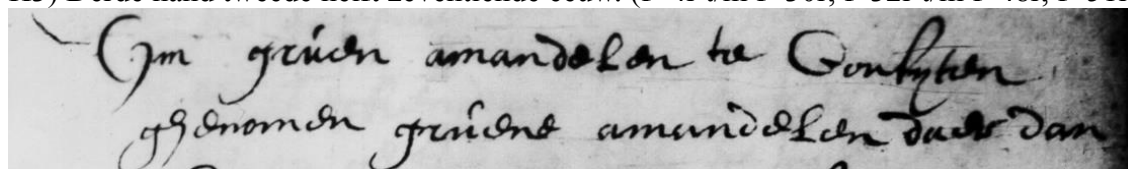 Om gruen amandelen te Confyten
ghenomen gruene amandelen daer dan